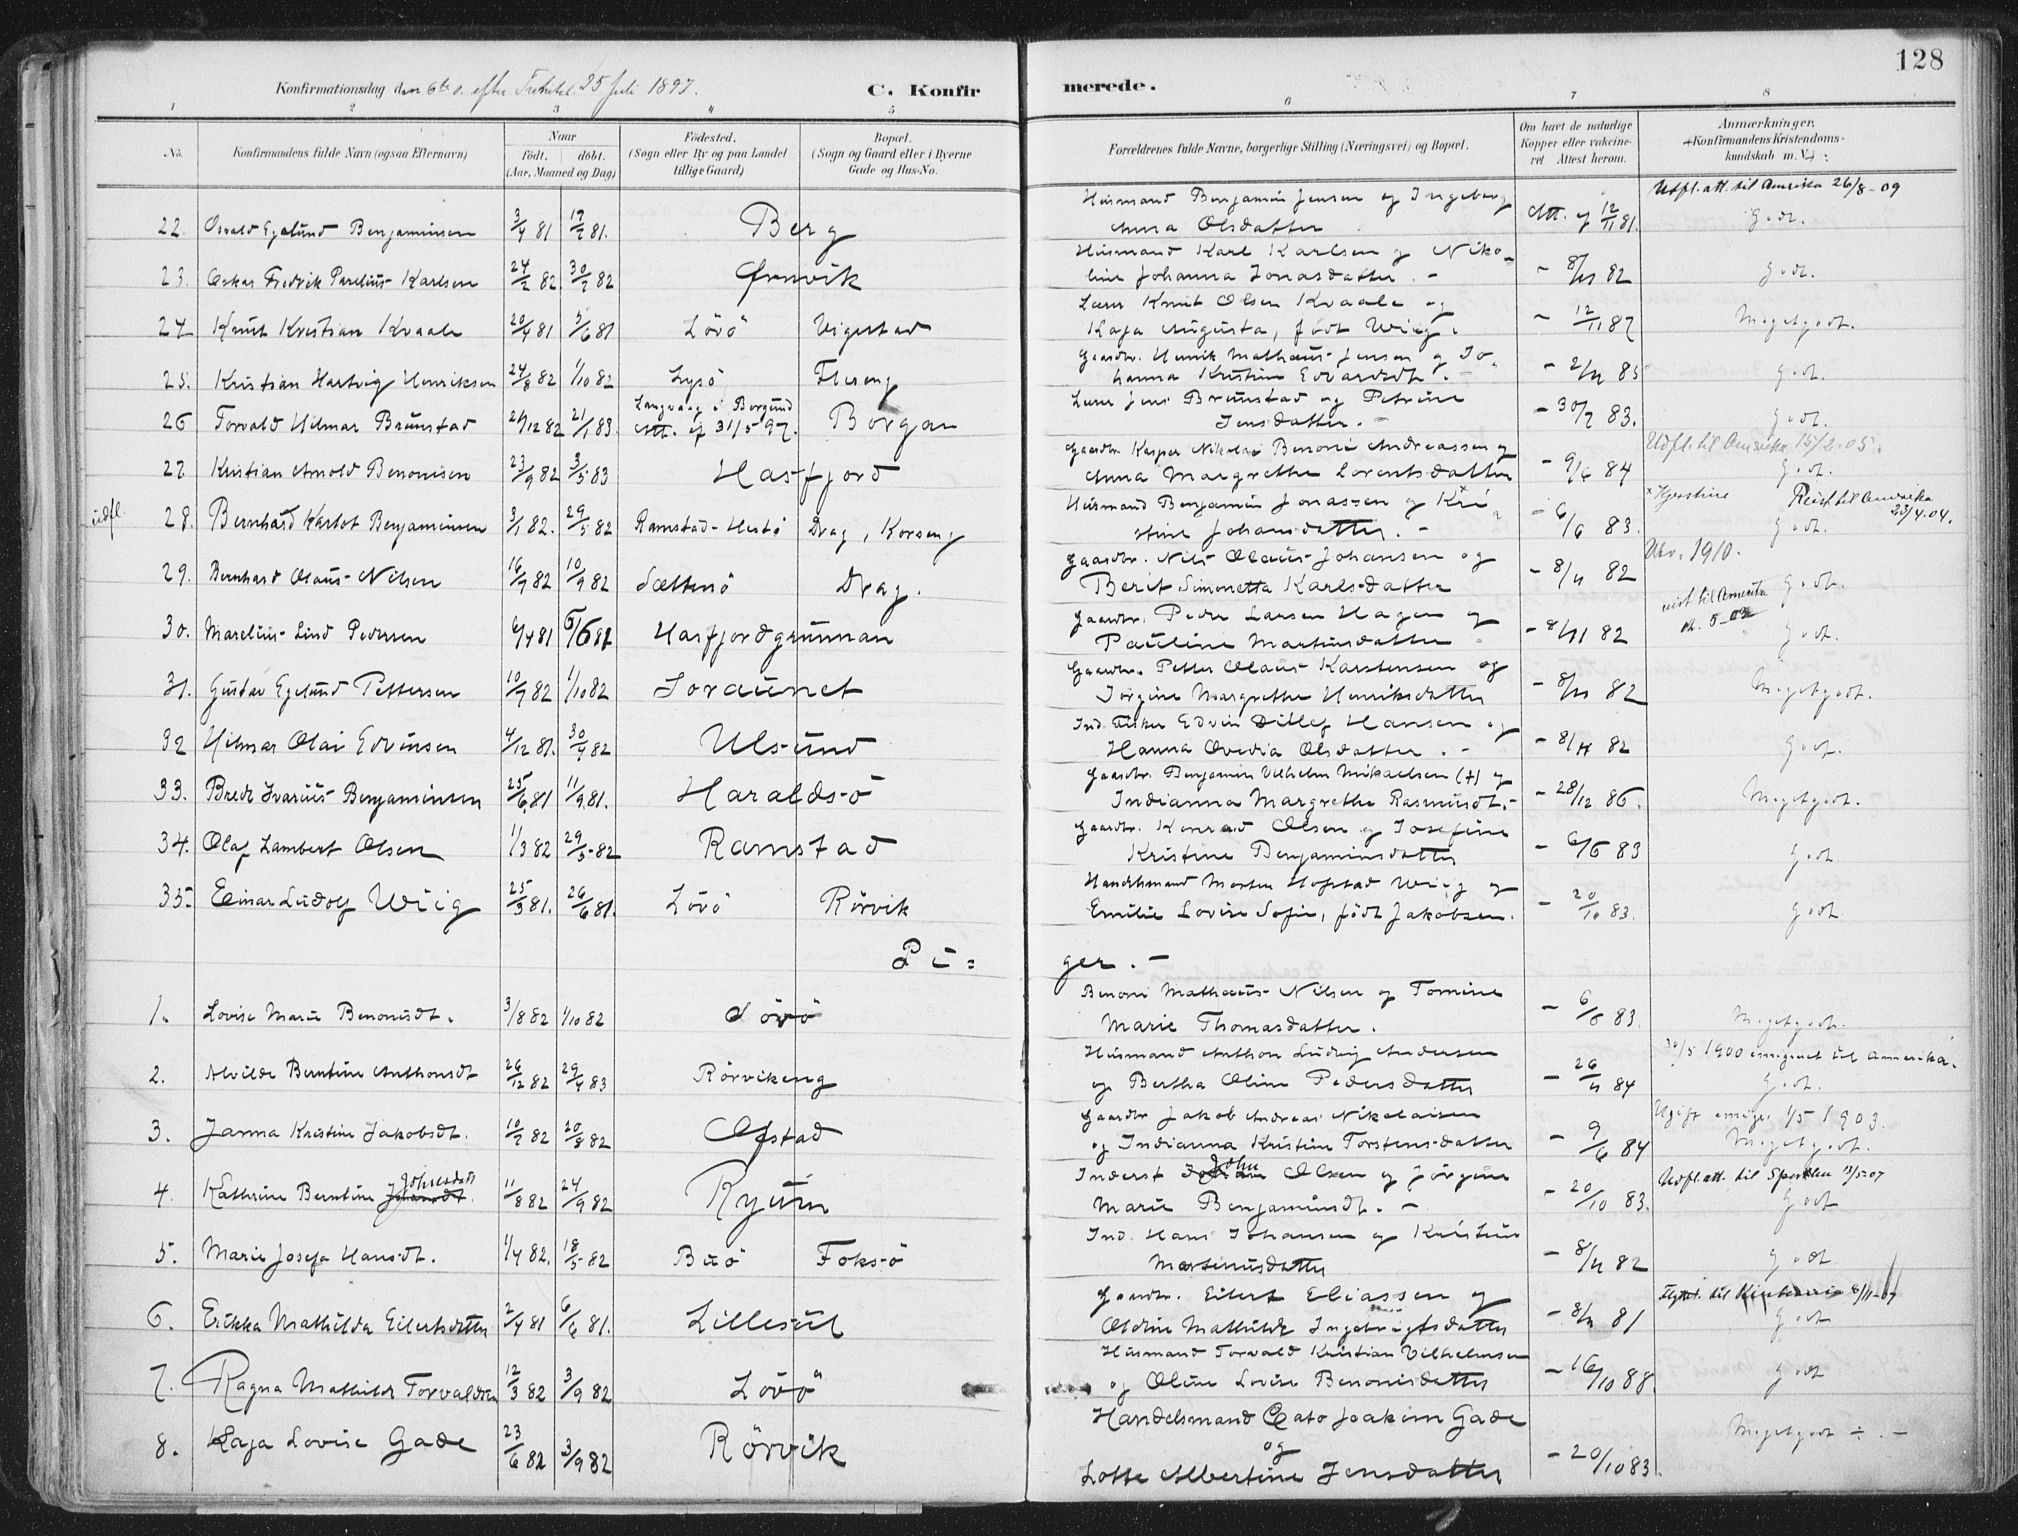 128
Konfirmationsdag den 6te s. efter Trefoteb. 25 Juli 1897.
C. Konfir
merede.
1 2 3 4 5 6 7 8
No.
Konfirmandens fulde Navn (ogsaa Efternavn)
Naar
födt. döbt.
(Aar, Maaned og Dag)
Födested.
(Sogn eller By og paa Landet tillige Gaard)
Bopæl.
(Sogn og Gaard eller i Byerne Gade og Hus-No.
Forældrenes fulde Navne, borgerlige Stilling (Næringsvei) og Bopæl.
Om havt de naturlige Kopper eller vaccineret Attest herom.
Anmærkninger,
Konfirmandens Kristendomskundskab m. V.
22. Osvald Egelund Benjaminsen 3/4 81 17/7 81. Berg
Husmand Benjamin Jensen og Ingeborg
Anna Olsdatter Att. af 12/11 81. Godt.
Udfl. att. til Amerika 26/8-09
23. Oskar Fredrik Parelius Karlsen 24/2 82. 30/7 82 Ørnvik
Husmand Karl Karlsen og Niko-
line Johanna Jonasdatter. - - 8/11 82 Godt.
24 Knut Kristian Kvaale 20/4 81 5/6 81 Lövö Vigestad
Lærer Knut Olsen Kvaale og
Kaja Augusta, født Wiig. - 12/11 87 Megetgodt.
25. Kristian Hartvig Henriksen 24/8 82 1/10 82 Lysö Flereng
Gaardbr. Henrik Mathæus Jensen og Jo-
hanna Kristine Edvardsdt. - - 2/11 85 godt.
26 Torvald Hilmar Brunstad 24/12 82 21/1 83. Langvaag i Borgund
Att. af 31/5 97. Borgan
Lærer Jens Brunstad og Petrine
Jensdatter. - - 30/7 83. Godt.
27 Kristian Arnold Benonisen 23/9 82 3/5 83 Hasfjord
Gaardbr. Kasper Nikolai Benoni Andreassen og
Anna Margrethe Lorentsdatter - 9/6 84 Godt.
Udfl. til Amerika 15/2.05.
udfl.
28. Bernhard Karlot Benjaminsen 3/1 82. 29/5 82 Ramstad-Hestö Drag, Korseng
Husmand Benjamin Jonassen og Kri-
stine Johansdatter. - - 6/6 83. Godt.
x Kjerstine Reist til Amerika
23/4.04.
29. Bernhard Olaus Nilsen 16/7 82 10/9 82 Sættersö Drag.
Gaardbr. Nils Olaus Johansen og
Berit Simonetta Karlsdatter - 8/11 82 Godt.
Utv. 1910.
30. Marelius Lind Pedersen 6/4 81 6/6 81 Hasfjordgrunnan
Gaardbr. Peder Larsen Hagen og
Pauline Martinsdatter - 8/11 82 Godt.
reist til Amerika
31. Gustav Egelund Pettersen 10/7 82 1/10 82 Joraunet
Gaardbr. Petter Olaus Karstensen og
Jörgine Margrethe Henriksdatter - 8/11 82 Megetgodt.
32 Hilmar Olai Edvinsen 4/12 81. 30/4 82 Ulsund
Ind. Fisker Edvin Ditlef Hansen og
Hanna Ovedia Olsdatter. - - 8/11 82 Godt.
33. Brede Ivarius Benjaminsen 25/6 81 11/9 81. Haraldsö
Gaardbr. Benjamin Vilhelm Mikaelsen (+) og
Indianna Margrethe Rasmusdt. - - 28/12 86. Megetgodt.
34. Olaf Lambert Olsen 1/3 82 29/5-82 Ramstad
Gaardbr. Konrad Olsen og Josefine
Kristine Benjaminsdatter - 6/6 83 Godt.
35. Einar Ludolf Wiig 25/3 81. 26/6 81. Lövö Rörvik
Handelsmand Morten Hofstad Wiig og
Emilie Lovise Sofie, født Jakobsen. - 20/10 83. godt.
Pi=
ger. -
1. Lovise Marie Benonisdt. 3/8 82 1/10 82 Lövö
Benoni Mathæus Nilsen og Tomine
Marie Thomasdatter. - 6/6 83. Megetgodt.
2. Alvilde Berntine Anthonsdt 26/12 82 29/4 83 Rörvikeng
Husmand Anthon Ludvig Andersen
og Bertha Oline Pedersdatter - 26/11 84 Godt.
30/5 1900 emigreret til Amerika.
3. Janna Kristine Jakobsdt. 10/7 82 20/8 82 Ofstad
Gaardbr Jakob Andreas Nikolaisen
og Indianna Kristine Torstensdatter - 9/6 84 Megetgodt.
Ugift emigr. 1/5 1903.
4. Kathrine Berntine Johnsdatt 11/8 82 24/9 82 Ryum
Inderst John Olsen og Jörgine
Marie Benjaminsdt. - - 20/10 83. Godt
Udfl. att. til 13/5-07
5. Marie Josefa Hansdt. 1/4 82. 18/5 82 Buö Foksö
Ind. Hans Johansen og Kristine
Martinusdatter - 8/11 82 godt
6. Erikka Mathilda Eilertsdatter 2/4 81 6/6 81. Lillesul
Gaardbr. Eilert Eliassen og
Oldine Mathilde Ingebrigtsdatter - 8/11 81 Godt
7. Ragna Mathilde Torvaldsen 12/3 82 3/9 82 Lövö
Husmand Torvald Kristian Vilhelmsen
og Oline Lovise Benonisdatter - 16/10 88. godt
8. Kaja Lovise Gade 23/6 82 3/9 82 Rörvik
Handelsmand Cato Joakim Gade
og
Lotte Albertine Jensdatter - 20/10 83. Megetgodt